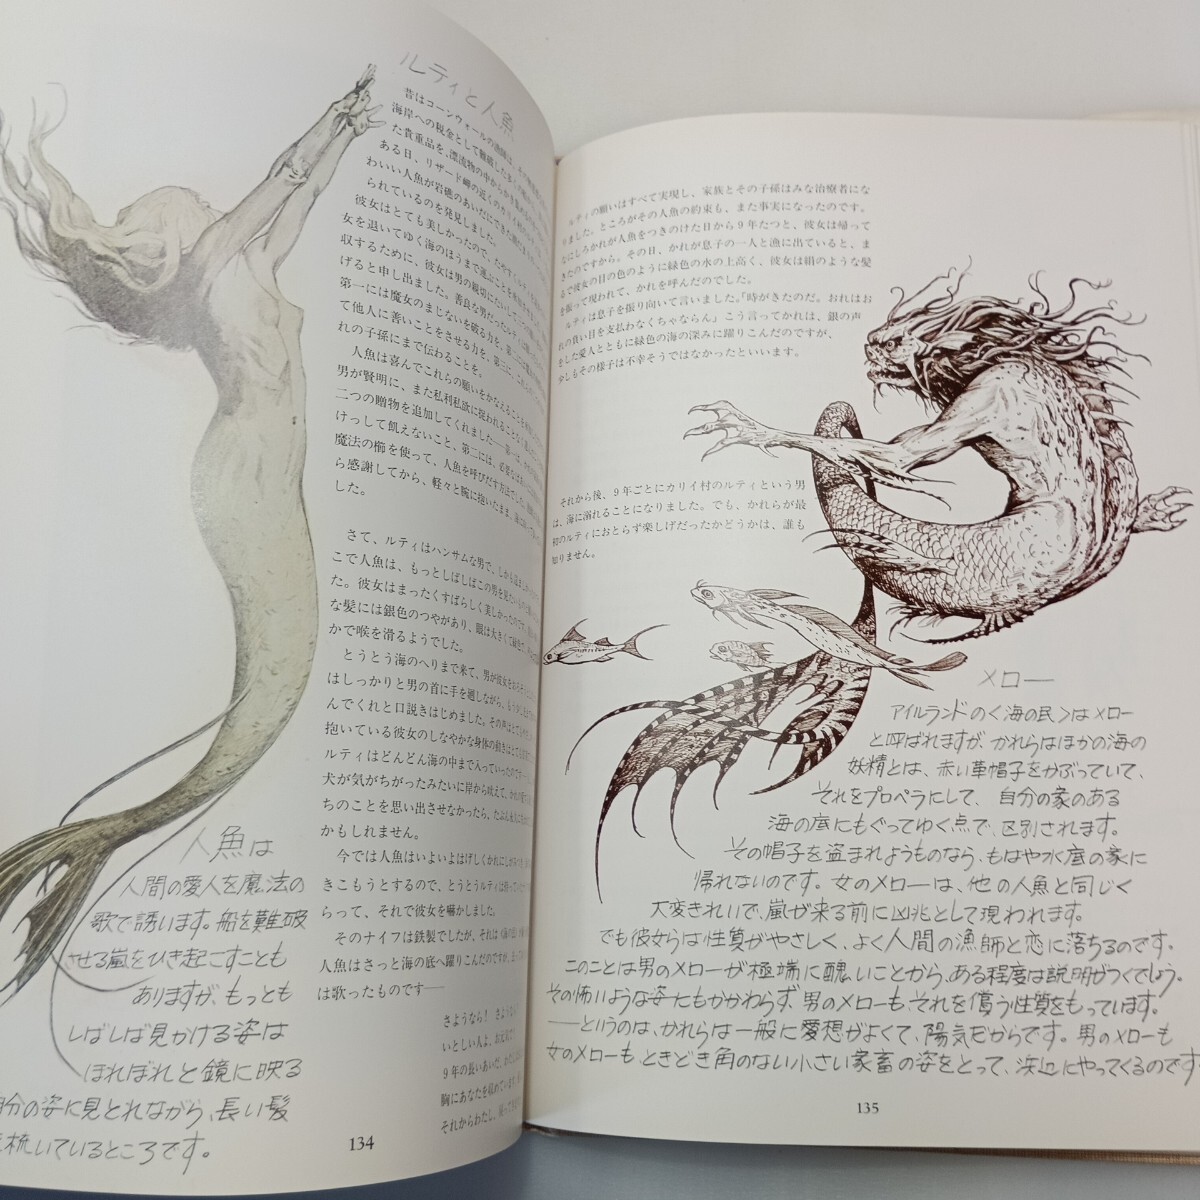 ルティと人魚
昔はコーンウォールの漁師は、
海岸への税金として難破した
た貴重品を、漂流物の中から
ある日、リザード岬の近くのカリイ
わいい人魚が岩礁のあいだに
られているのを発見しました。
彼女はとても美しかったので、
女を退いてゆく海のほうまで運ぶことを
収するために、彼女は男の親切に
げると申し出ました。善良な男だったル
第一には魔女のまじないを破る力を、第二
て他人に善いことをさせる力を、第三に、これ
れの子孫にまで伝わることを。
人魚は喜んでこれらの願いをかなえることを
男が賢明に、また私利私欲に捉われることな
二つの贈物を追加してくれました——第一は、
けっして飢えないこと、第二には、必要な
魔法の櫛を使って、人魚を呼びだす方法でした。
ら感謝してから、軽々と腕に抱いたまま、海に
した。
さて、ルティはハンサムな男で、しかも
こで人魚は、もっとしばしばこの男を見たい
た。彼女はまったくすばらしく美しかったので、
な髪には銀色のつやがあり、眼は大きくて緑色で、
かで喉を滑るようでした。
とうとう海のへりまで来て、男が彼女をおろそ
はしっかりと男の首に手を廻しながら、もう少し
んでくれと口説きはじめました。その声はとても
抱いている彼女のしなやかな身体の動きはとても
ルティはどんどん海の中まで入っていったのです——
犬が気がちがったみたいに岸から吠えて、かれの
ちのことを思い出させなかったら、たぶん永久に
かもしれません。
今では人魚はいよいよはげしくかれにしが
きこもうとするので、とうとうルティは持っていた
らって、それで彼女を嚇かしました。
そのナイフは鉄製でしたが、それは〈海の
人魚はさっと海の底へ躍りこんだのですが、
は歌ったものです——
さようなら！ さようなら
いとしい人よ、お元気で
9年の長いあいだ、わた
胸にあなたを収めています
それからわたし、帰って
人魚は
人間の愛人を魔法の
歌で誘います。船を難破
させる嵐をひき起こすことも
ありますが、もっとも
しばしば見かける姿は
ほれぼれと鏡に映る
分の姿に見とれながら、長い髪
梳いているところです。
134
ルティの願いはすべて実現し、家族とその子孫はみな治療者にな
りました。ところがその人魚の約束も、また事実になったのです。
なにしろかれが人魚をつきのけた日から9年たつと、彼女は帰って
きたのですから。その日、かれが息子の一人と漁に出ていると、ま
るで彼女の目の色のように緑色の水の上高く、彼女は絹のような髪
を振って現われて、かれを呼んだのでした。
ルティは息子を振り向いて言いました。「時がきたのだ。おれはお
れの負い目を支払わなくちゃならん」こう言ってかれは、銀の声
をした愛人とともに緑色の海の深みに躍りこんだのですが、
少しもその様子は不幸そうではなかったといいます。
それから後、9年ごとにカリイ村のルティという男
は、海に溺れることになりました。でも、かれらが最
初のルティにおとらず楽しげだったかどうかは、誰も
知りません。
メロー
アイルランドの〈海の民〉はメロー
と呼ばれますが、かれらはほかの海の
妖精とは、赤い革帽子をかぶっていて、
それをプロペラにして、自分の家のある
海の底にもぐってゆく点で、区別されます。
その帽子を盗まれようものなら、もはや水底の家に
帰れないのです。女のメローは、他の人魚と同じく
大変きれいで、嵐が来る前に凶兆として現われます。
でも彼女らは性質がやさしく、よく人間の漁師と恋に落ちるのです。
このことは男のメローが極端に醜いことから、ある程度は説明がつくでしょう。
その怖いような姿にもかかわらず、男のメローも、それを償う性質をもっています。
——というのは、かれらは一般に愛想がよくて、陽気だからです。男のメローも
女のメローも、ときどき角のない小さい家畜の姿をとって、浜辺にやってくるのです
135